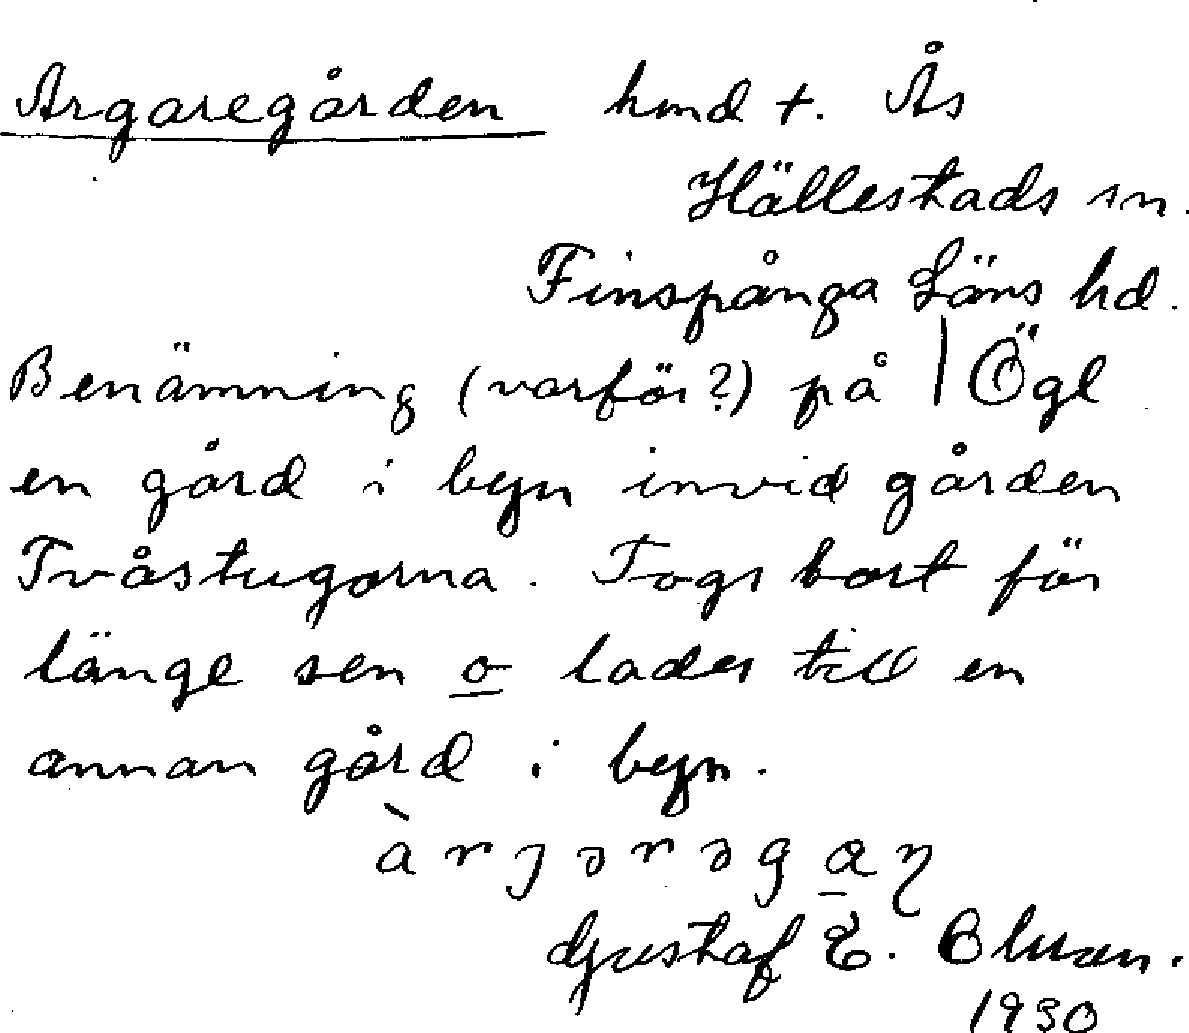 Argaregården hmd t. Ås
Hällestads sn.
Finspånga Läns hd.
Benämning (varför?) på | Ögl
en gård i byn invid gården
Tvåstugorna. Togs bort för
länge sen o lades till en
annan gård i byn.
Gustaf E. Bluan.
1930